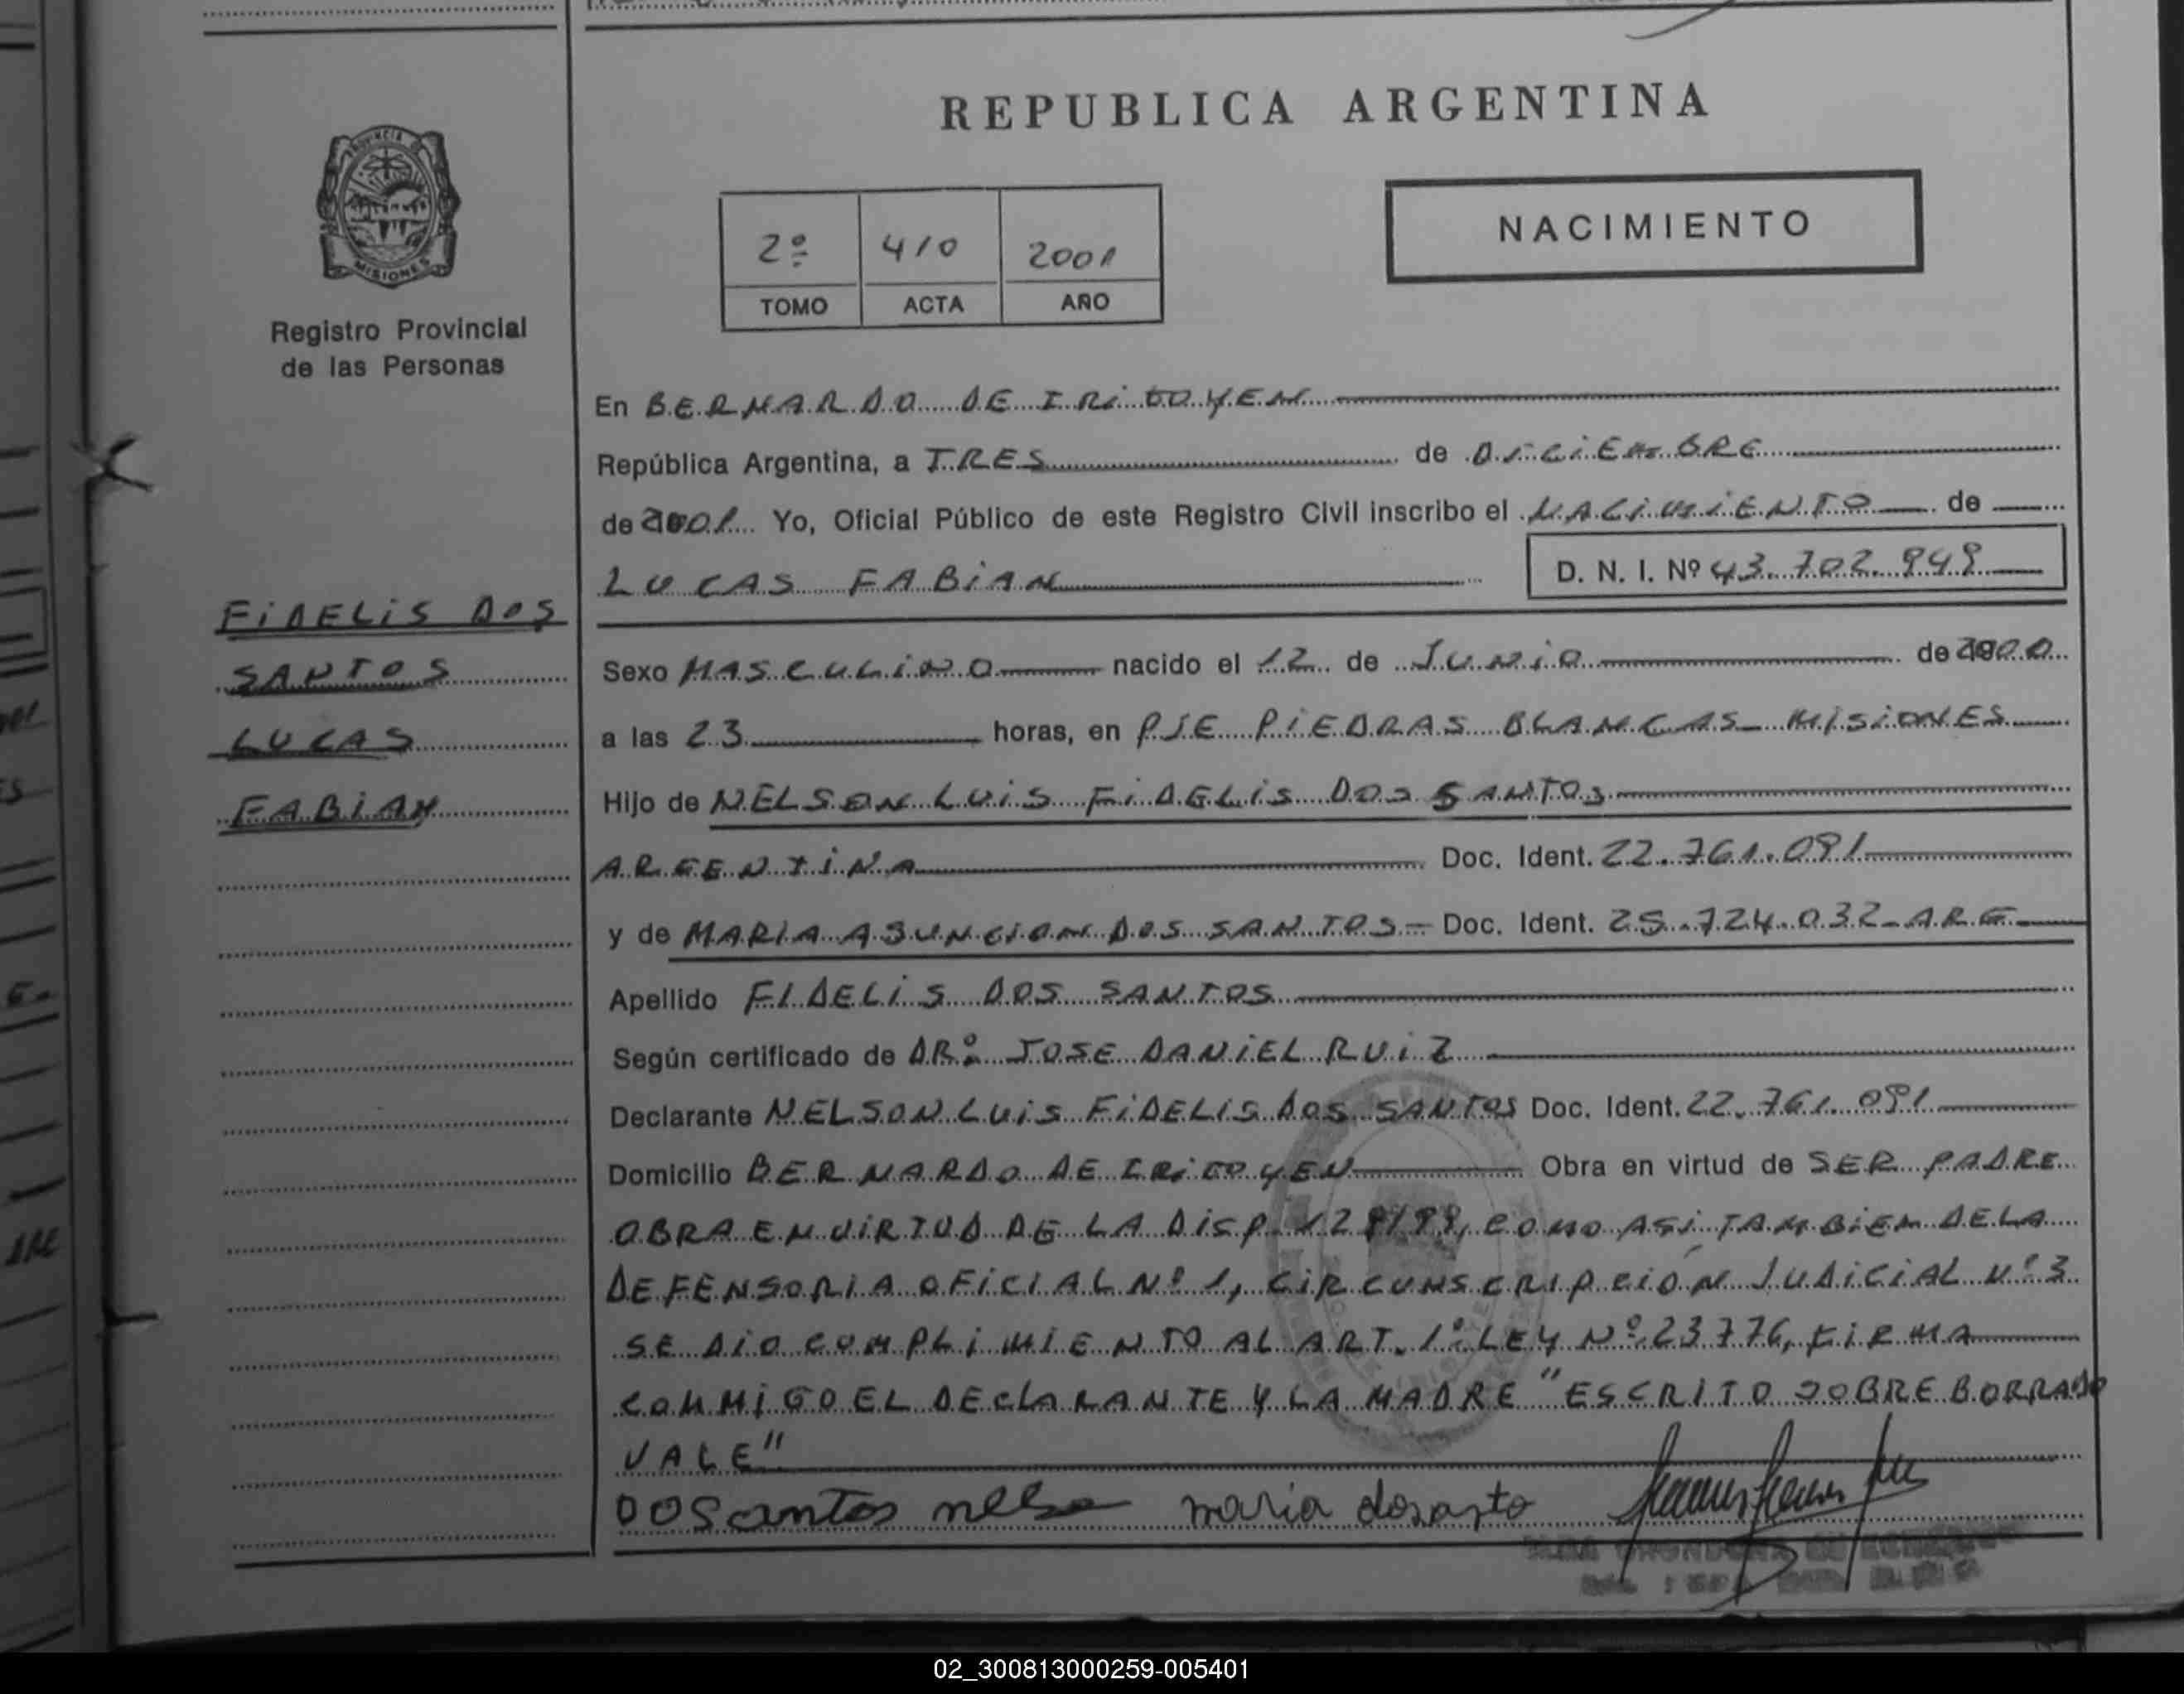 REPUBLICA ARGENTINA
PROVINCIA DE
MISIONES
Registro Provincial
de las Personas
2º 410 2001
TOMO ACTA AÑO
NACIMIENTO
En BERNARDO DE IRIGOYEN
República Argentina, a TRES de DICIEMBRE
de 2001 Yo, Oficial Público de este Registro Civil inscribo el NACIMIENTO de
LUCAS FABIAN D. N. I. Nº 43.702.949
FIDELIS DOS
SANTOS
LUCAS
FABIAN
Sexo MASCULINO nacido el 12 de JUNIO de 2000
a las 23 horas, en PJE PIEDRAS BLANCAS - MISIONES
Hijo de NELSON LUIS FIDELIS DOS SANTOS
ARGENTINA Doc. Ident. 22.761.091
y de MARIA ASUNCION DOS SANTOS - Doc. Ident. 25.724.032 - ARG
Apellido FIDELIS DOS SANTOS
Según certificado de DRº JOSE DANIEL RUIZ
Declarante NELSON LUIS FIDELIS DOS SANTOS Doc. Ident. 22.761.091
Domicilio BERNARDO DE IRIGOYEN Obra en virtud de SER PADRE
OBRA EN VIRTUD DE LA DISP. COMO ASI TAMBIEN DE LA
DEFENSORIA OFICIAL Nº 1, CIRCUNSCRIPCIÓN JUDICIAL Nº 3
SE DIO COMPLIMIENTO AL ART. 1º LEY Nº 23776, FIRMA
COMMIGO EL DECLARANTE Y LA MADRE "ESCRITO SOBRE BORRADO
VALE"
DOSantos nelso maria dosasto
02_300813000259-005401